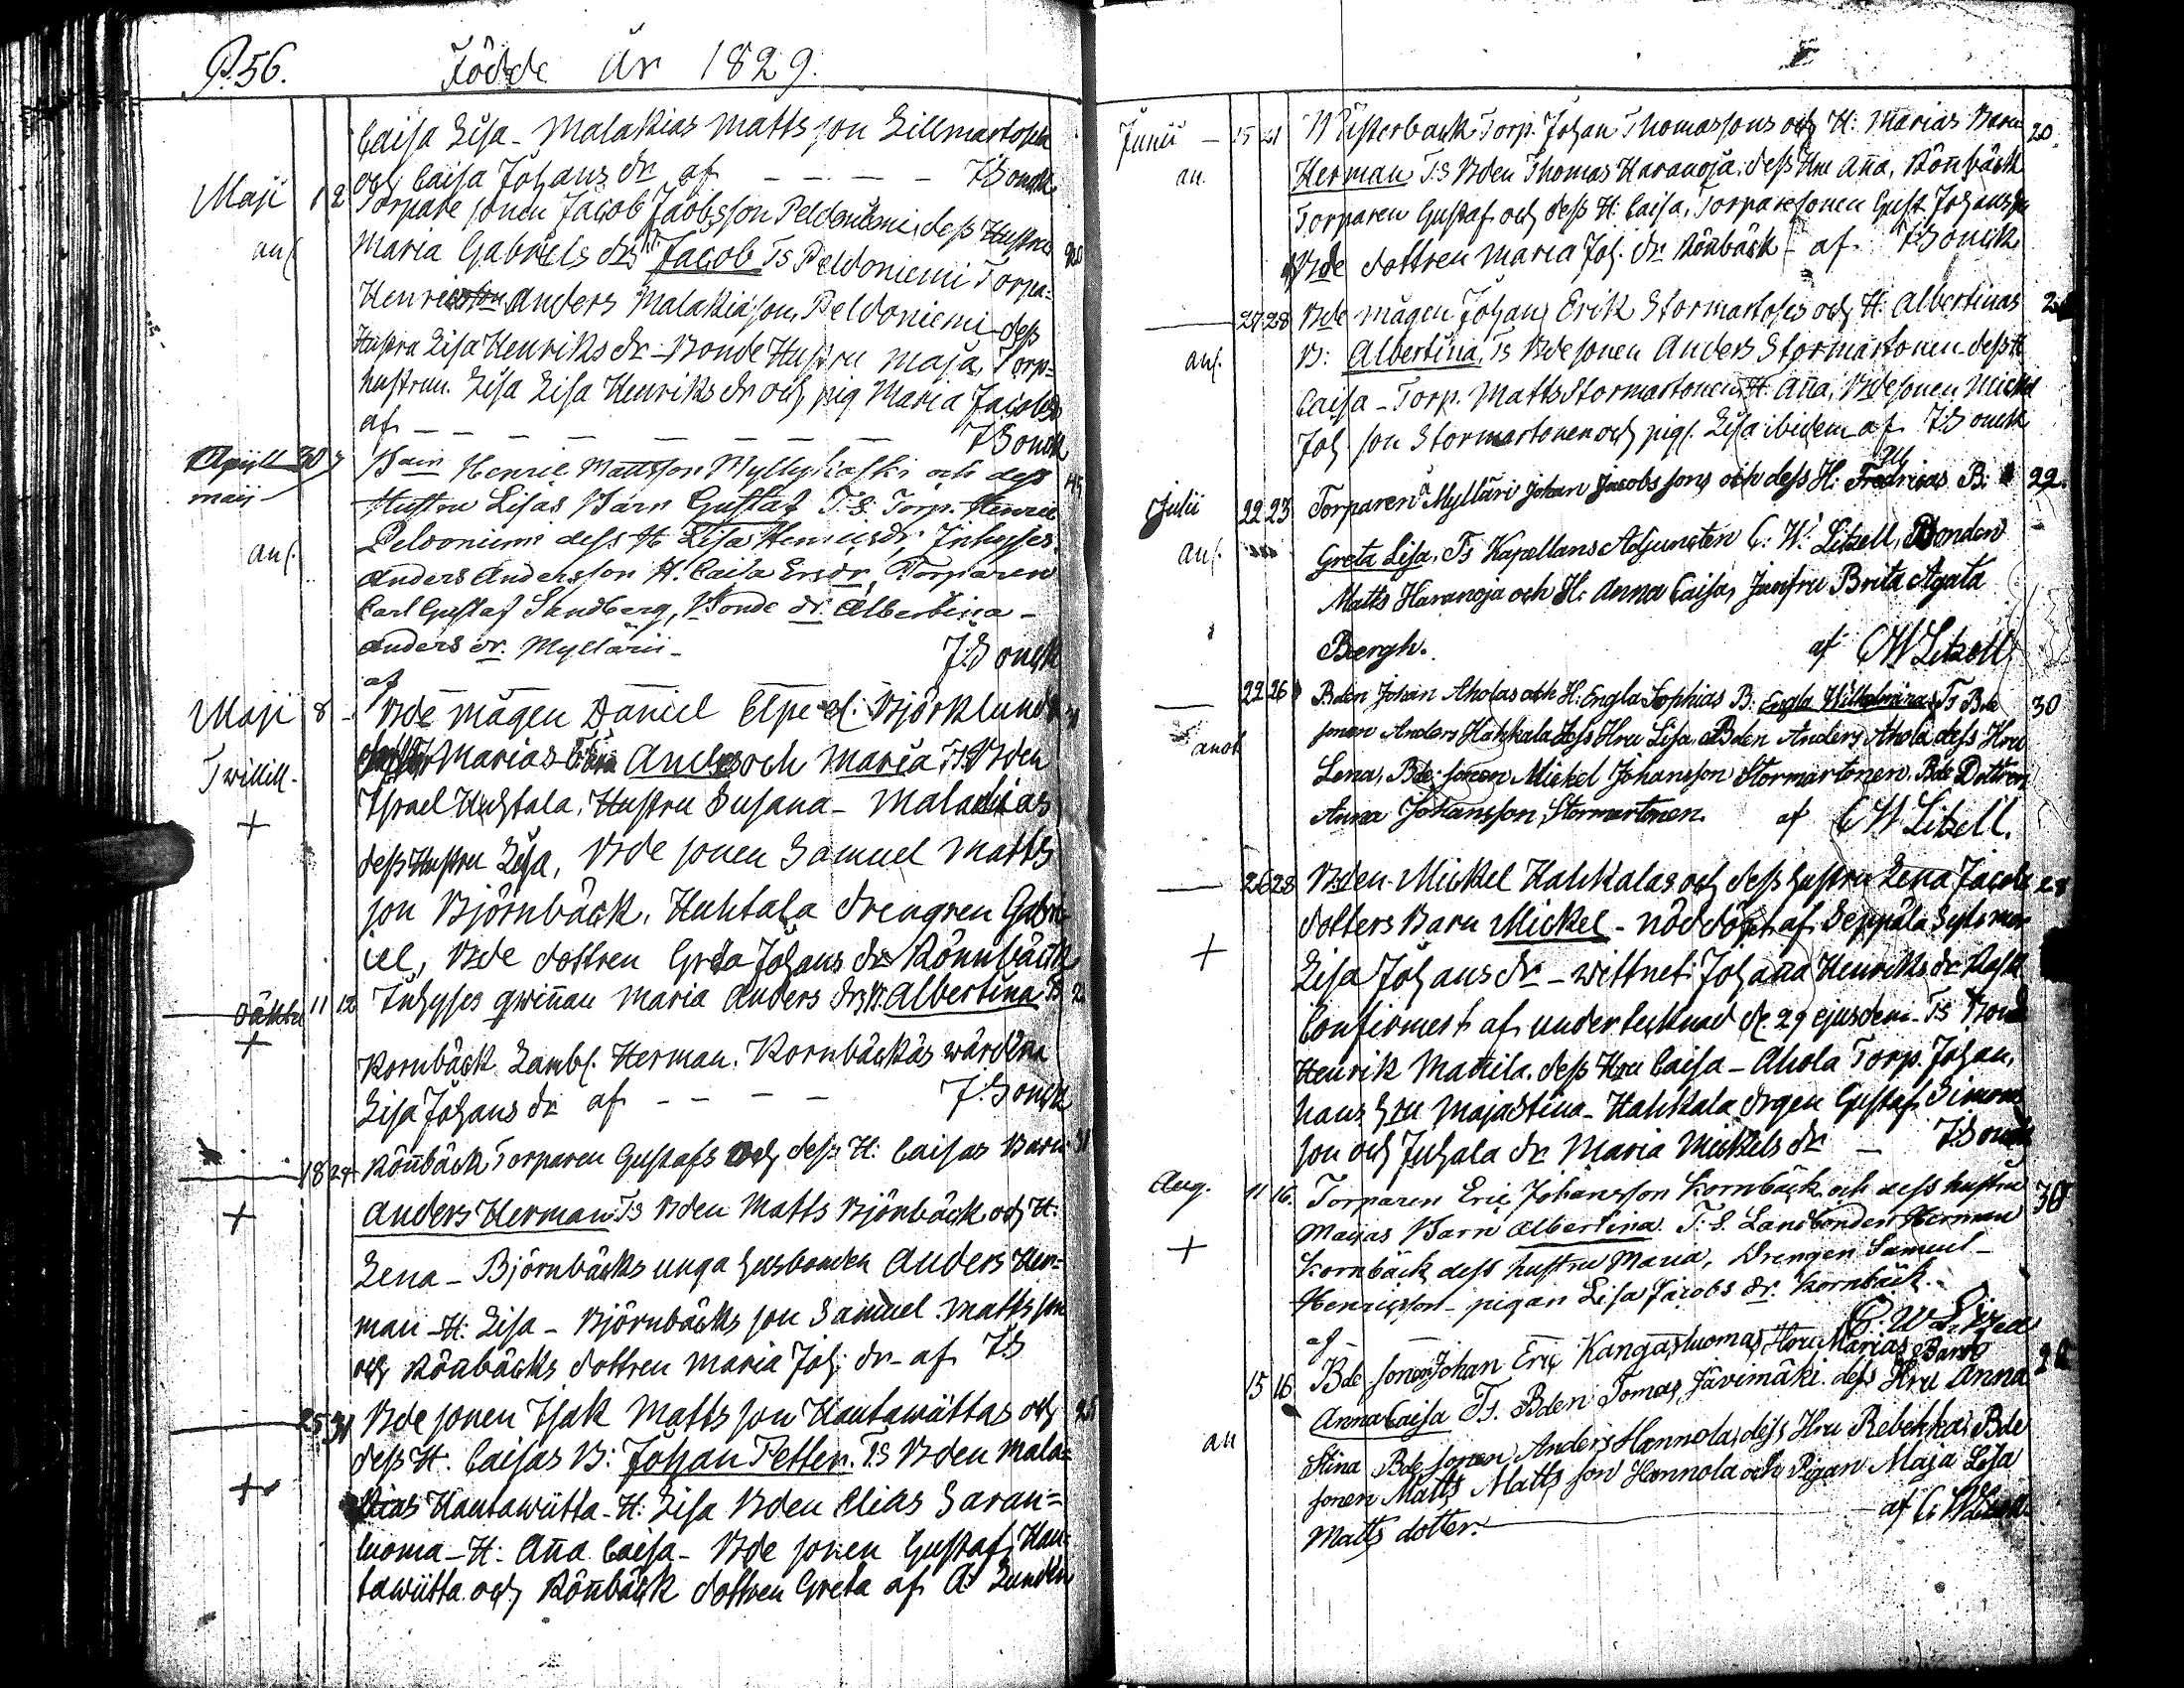 P. 56. Födde År 1829.
Caisa Lisa - Malakias Matts son Lillmartosela
och Caisa Johans dr af - - - - J:Bonck
Maji 1 2 Torpare sonen Jacob Jacobsson Peldoniemi, dess Hustru
anf. Maria Gabriels drs Jacob Ts Peldoniemi Torpa= 20
Henricsson Anders Malakiasson, Peldoniemi dess
Hustru Lisa Henriks dr - Bonde Hustru Maja, Torp=
hustrun. Lisa Lisa Henriks dr och pig Maria Jacobs
af - - - - - - - J Bonck
Apill 30 7 Henric Mattsson Myllykoski och dess
maij Hustru Lisas Barn Gustaf T.S. Torp. Henric
anf. Peldoniemi dess H. Lisa Henricsdr, Inhyses
Anders Andersson H. Caisa Ersdr, Torparen
Carl Gustaf Sandberg, Bonde dr. Albertina -
Anders dr. Myllärii -
af J:Bonck
Maji 8 - Bde mågen Daniel Elpe el. Björklunds
Twilill. Marias Anders och Maria Ts Bden
+ Israel Huhtala, Hustru Susana - Malachias
dess Hustru Lisa, Bde sonen Samuel Matts
son Björnbäck, Huhtala drengen Gabri
iel, Bde dottren Greta Johans dr Rönnbäck
oäkta 11 12 Inhyses qwinnan Maria Anders drs B. Albertina Ts
+ Kornbäck Lambl. Herman. Kornbäckäs wärdina
Lisa Johans dr af - - - - J:Bonck
18 24 Rönbäck Torparen Gustafs och dess H: Caisas Barn 31
+ Anders Herman Ts Bden Matts Björnbäck och H:
Lena - Björnbäcks unga husbonden Anders Her=
man - H: Lisa - Björnbäcks son Samuel Matts son
och Rönbäcks dottren Maria Joh: dr - af JB
25 31 Bde sonen Isak Matts son Hautawiittas och
dess H. Caisas B: Johan Petter. Ts Bden Mala=
+ kias Hautawiitta - H: Lisa Bden Elias Saran=
luoma - H: Ana Caisa - Bde sonen Gustaf Hau=
tawiitta och Rönbäck dottren Greta af A: Lundén
Junii - 15 21 Westerback Torp. Johan Thomassons och H: Marias Barn 20
an. Herman Ts Bden Thomas Haranoja, dess Hru Ana, Rönbäck
Torparen Gustaf och dess H: Caisa, Torparesonen Gust Johansson
Bde dottren Maria Joh. dr. Rönbäck - af J:Bonck
27 28 Bde mågen Johan Erik Stormartoses och H: Albertinas
anf. B: Albertina, Ts Bdesonen Anders Stormartonen dess H
Caisa - Torp. Matts Stormartonen, H: Ana, Bdesonen Mickel
Joh. son Stormartonen och pigs. Lisa ibidem af J:Bonck
Julii 22 23 Torparen Mylläri Johan Jacobs sons och dess H: Fredricas B: 22.
anf. Greta Lisa, Ts Kapellans Adjuncten C: W: Litzell, Bonden
Matts Haranoja och H: Anna Caisa, Jungfru Brita Agata
Bergh. af CW Litzell
22 26 Bden Johan Aholas och H: Engla Sophias B: Engla Wilhelmina, Ts Bde 30
anot sonen Anders Hahkala dess Hru Lisa, Bden Anders Ahola dess Hru
Lena, Bde sonen Mickel Johansson Stormartonen, Bde Dottren
Anna Johansson Stormartonen. af CW Litzell.
26 28 Bden Mickel Hahkalas och dess hustru Lena Jacobs 28
dotters Barn Mickel - nöddöpt af Seppälä Sytomer
+ Lisa Johans dr - wittnet: Johana Henriks dr Rask
Confirmert af undertecknad d. 29 ejusdem - Ts Bond
Henrik Mattila, dess Hru Caisa - Ahola Torp. Johan,
hans Hru Maja Stina - Hahkala drgen Gustaf Simons
son och Juhala dr Maria Mickels dr - J:Bonck
Aug. 11 16. Torparen Eric Johansson Kornbäck och dess hustru 30
Marias Barn Albertina. T. S. Landbonden Herman
+ Kornbäck dess hustru Maria, Drengen Samuel -
Henricsson - pigan Lisa Jacobs dr. Kornbäck.
af - C. W Litzell
15 16 Bde sonen Johan Eric Kangasluomas, Hru Marias Barn
Anna Caisa Ts. Bden Tomas Järvimäki dess Hru Anna
an Stina Bde sonen, Anders Hannola, dess Hru Rebekka, Bde
sonen Matts Matts son Hannola och Pigan Maja Lisa
Matts dotter. af C W Litzell